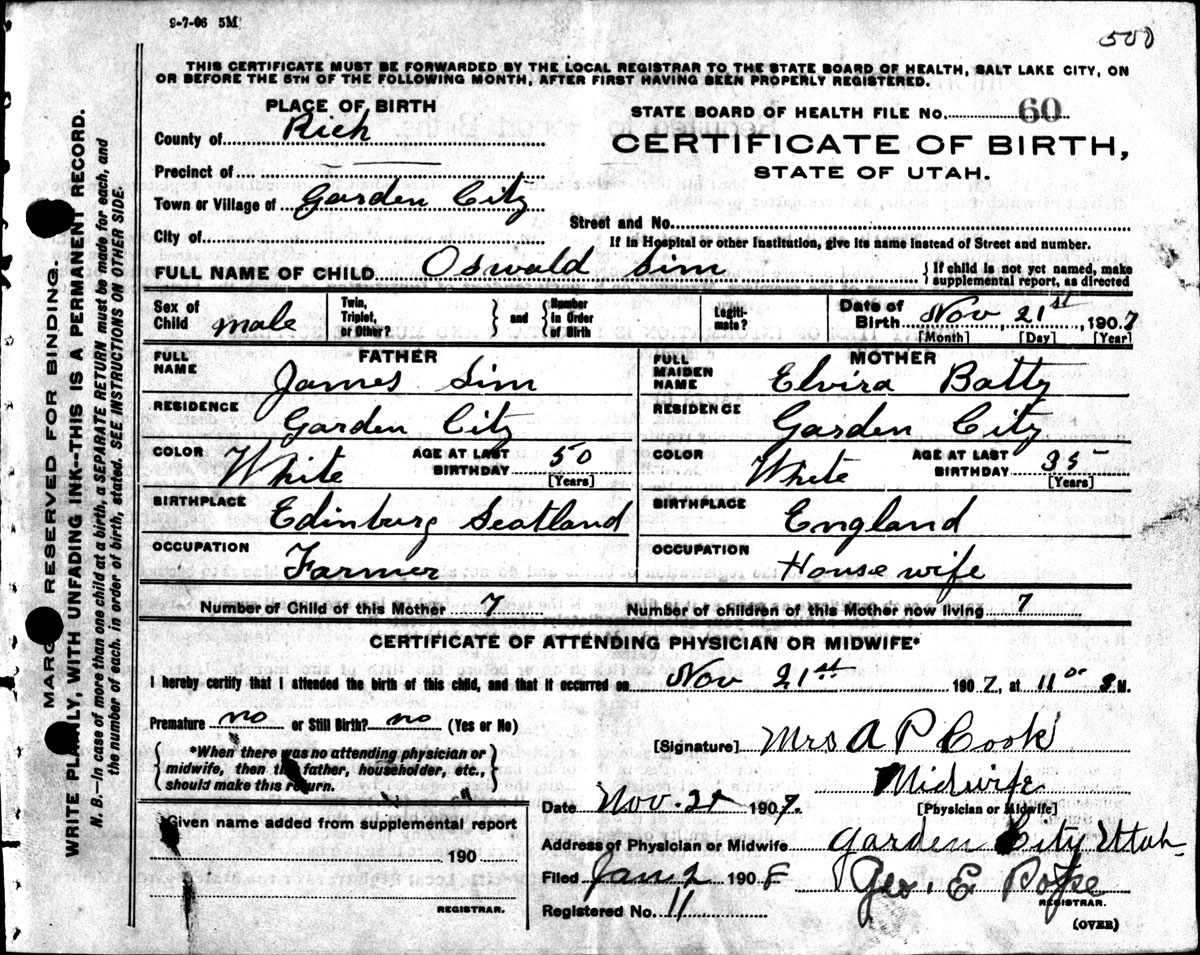 9-7-06 5M
500
THIS CERTIFICATE MUST BE FORWARDED BY THE LOCAL REGISTRAR TO THE STATE BOARD OF HEALTH, SALT LAKE CITY, ON
OR BEFORE THE 5TH OF THE FOLLOWING MONTH, AFTER FIRST HAVING BEEN PROPERLY REGISTERED.
PLACE OF BIRTH
STATE BOARD OF HEALTH FILE NO. 60
County of Rich
CERTIFICATE OF BIRTH,
Precinct of
STATE OF UTAH.
Town or Village of Garden City
Street and No.
City of
If in Hospital or other Institution, give its name instead of Street and number.
FULL NAME OF CHILD Oswald Sim
{ If child is not yet named, make supplemental report, as directed
Sex of Child male
Twin, Triplet, or Other? } and { Number in Order of Birth
Legiti-mate?
Date of Birth Nov 21st, 1907
[Month] [Day] [Year]
FATHER
MOTHER
FULL NAME James Sim
FULL MAIDEN NAME Elvira Batty
RESIDENCE Garden City
RESIDENCE Garden City
COLOR White AGE AT LAST BIRTHDAY 50 [Years]
COLOR White AGE AT LAST BIRTHDAY 35 [Years]
BIRTHPLACE Edinburg Scotland
BIRTHPLACE England
OCCUPATION Farmer
OCCUPATION House wife
Number of Child of this Mother 7 Number of children of this Mother now living 7
CERTIFICATE OF ATTENDING PHYSICIAN OR MIDWIFE*
I hereby certify that I attended the birth of this child, and that it occurred on Nov 21st 1907, at 11 M.
Premature no or Still Birth? no (Yes or No)
[Signature] Mrs A P Cook
{ *When there was no attending physician or
midwife, then the father, householder, etc.,
should make this return. }
Midwife
Date Nov. 21 1907.
[Physician or Midwife]
Given name added from supplemental report
190
REGISTRAR.
Address of Physician or Midwife Garden City Utah
Filed Jan 2 1908 Geo. E Pope
REGISTRAR.
Registered No. 11
(OVER)
MARGIN RESERVED FOR BINDING.
WRITE PLAINLY, WITH UNFADING INK--THIS IS A PERMANENT RECORD.
N. B.—In case of more than one child at a birth, a SEPARATE RETURN must be made for each, and
the number of each, in order of birth, stated. SEE INSTRUCTIONS ON OTHER SIDE.